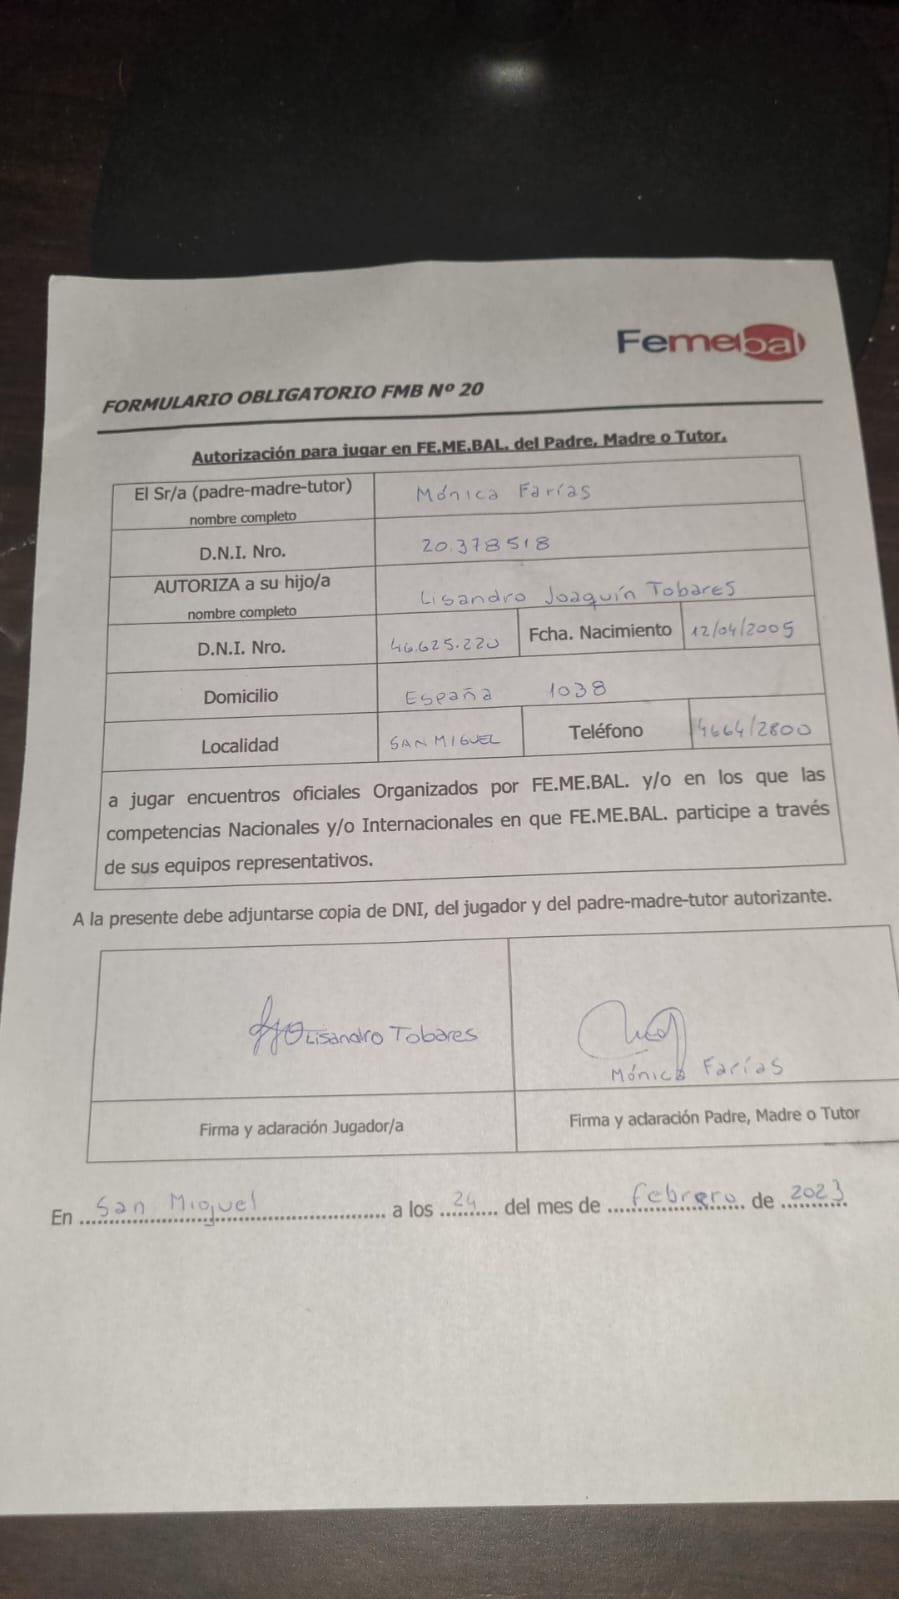 Femebal
FORMULARIO OBLIGATORIO FMB Nº 20
Autorización para jugar en FE.ME.BAL. del Padre, Madre o Tutor.
El Sr/a (padre-madre-tutor) Mónica Farías
nombre completo
D.N.I. Nro. 20.378518
AUTORIZA a su hijo/a Lisandro Joaquín Tobares
nombre completo
D.N.I. Nro. 46.625.220 Fcha. Nacimiento 12/04/2005
Domicilio España 1038
Localidad SAN MIGUEL Teléfono 4664/2800
a jugar encuentros oficiales Organizados por FE.ME.BAL. y/o en los que las
competencias Nacionales y/o Internacionales en que FE.ME.BAL. participe a través
de sus equipos representativos.
A la presente debe adjuntarse copia de DNI, del jugador y del padre-madre-tutor autorizante.
Lisandro Tobares
Mónica Farías
Firma y aclaración Jugador/a Firma y aclaración Padre, Madre o Tutor
En San Miguel a los 24 del mes de febrero de 2023